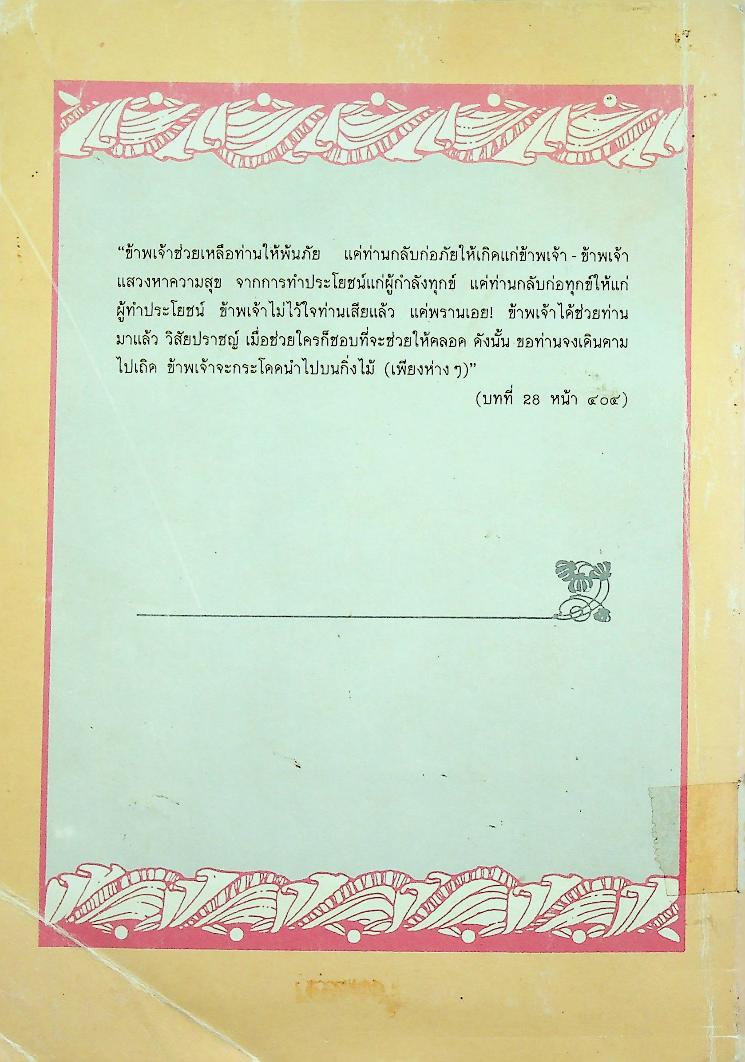 “ข้าพเจ้าช่วยเหลือท่านให้พ้นภัย แต่ท่านกลับก่อภัยให้เกิดแก่ข้าพเจ้า - ข้าพเจ้า
แสวงหาความสุข จากการทำประโยชน์แก่ผู้กำลังทุกข์ แต่ท่านกลับก่อทุกข์ให้แก่
ผู้ทำประโยชน์ ข้าพเจ้าไม่ไว้ใจท่านเสียแล้ว แต่พรานเอย! ข้าพเจ้าได้ช่วยท่าน
มาแล้ว วิสัยปราชญ์ เมื่อช่วยใครก็ชอบที่จะช่วยให้ตลอด ดังนั้น ขอท่านจงเดินตาม
ไปเถิด ข้าพเจ้าจะกระโดดนำไปบนกิ่งไม้ (เพียงห่าง ๆ)”
(บทที่ 28 หน้า ๔๐๔)